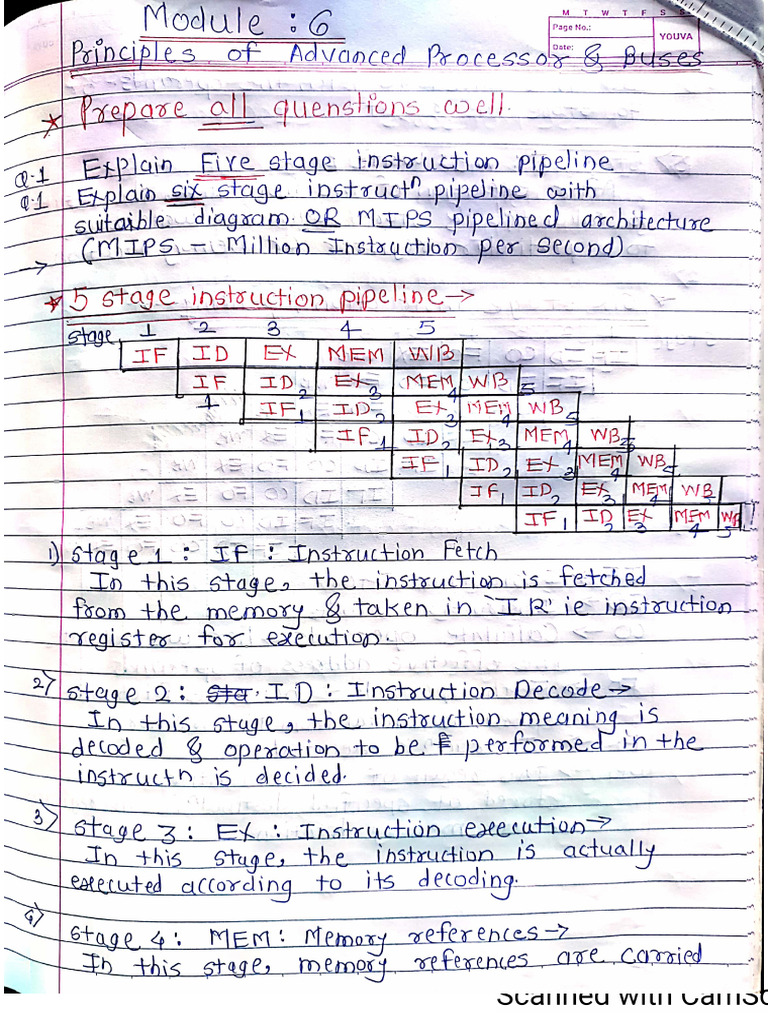 Module : 6
M T W T F S S
Page No.:
Date:
YOUVA
Principles of Advanced Processor & Buses
* Prepare all quenstions well.
Q.1 Explain Five stage instruction pipeline
Q.1 Explain six stage instructn pipeline with
suitaible diagram OR MIPS pipelined architecture
(MIPS - Million Instruction per second)
→
* 5 stage instruction pipeline →
stage 1 2 3 4 5
IF ID EX MEM WB
IF 1 ID 2 EX 3 MEM 4 WB 5
IF 1 ID 2 EX 3 MEM 4 WB 5
IF 1 ID 2 EX 3 MEM 4 WB 5
IF 1 ID 2 EX 3 MEM 4 WB 5
IF 1 ID 2 EX 3 MEM 4 WB
IF 1 ID 2 EX 3 MEM 4 WB 5
1) stage 1 : IF : Instruction Fetch
In this stage, the instruction is fetched
from the memory & taken in 'IR' ie instruction
register for execution.
2) stage 2 : Sta. ID : Instruction Decode →
In this stage, the instruction meaning is
decoded & operation to be f performed in the
instructn is decided.
3) stage 3 : EX : Instruction execution →
In this stage, the instruction is actually
executed according to its decoding.
4) stage 4 : MEM : Memory references →
In this stage, memory references are carried
Scanned with CamSc